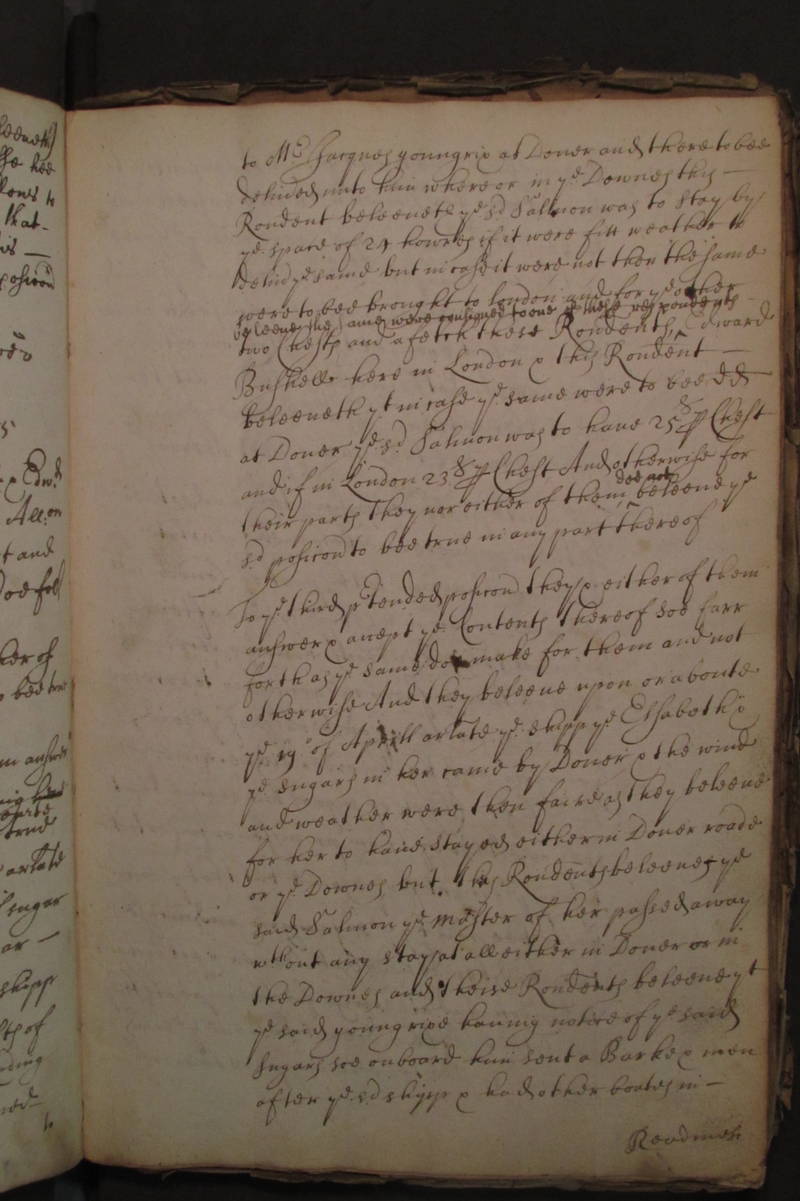 to Mr Jacques youngrix at Dover and there to bee
deliued unto him where or in ye Downes this —
Rondent beleeueth ye sd Salmon was to stay by
ye space of 24 howres if it were fitt weather to
deliud ye same but in case it were not then the same
were to bee brought to London and for ye other
beleeue the same were consigned to one of these respondents
two Chests and a fetch these Rondents Edward
Bushell here in London & this Rondent —
beleeueth yt in case ye same were to bee dd
at Dover ye sd Salmon was to haue 25s p Chest
and if in London 23s p Chest And otherwise for
their parts they nor either of them doe not beleeue ye
sd posicon to bee true in any part thereof
To ye third prtended posicon they & either of them
answer & accept ye Contents thereof soe farr
forth as ye same doe make for them and not
otherwise And they beleeue upon or aboute
ye 19o of Aprill arlate ye shipp ye Elsabeth &
ye sugars in her came by Dover & the wind
and weather were then faire as they beleeue
for her to haue stayed either in Dover roade
or ye Downes but this Rondents beleeues ye
said Salmon ye Master of her passed away
wthout any stay at all either in Dover or in
the Downes and theise Rondents beleeue yt
ye said youngrixe hauing notice of ye said
sugars soe onboard him sent a Barke & men
after ye sd shipp & had other boates in —
Readines
leeueth
the hee
that-
his —
posicon
& Edwd
All:on
t and
doe soe
her of
bee true
in answer
true
arlate
sugar
ar —
shipp
th of
ned—
to